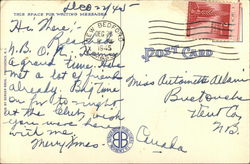 Dec 27/45
THIS SPACE FOR WRITING MESSAGES
POST CARD
Hi There:
N.B. O.K.
a grand time. Have
met a lot of friends
already. Big time
on for to-night
at the Club, wish
you were here
with me.
Merry Xmas.
NEW BEDFORD
DEC 28
1945
Miss Antoinette Allain
Buctouche
Kent Co.
N.B.
Canada